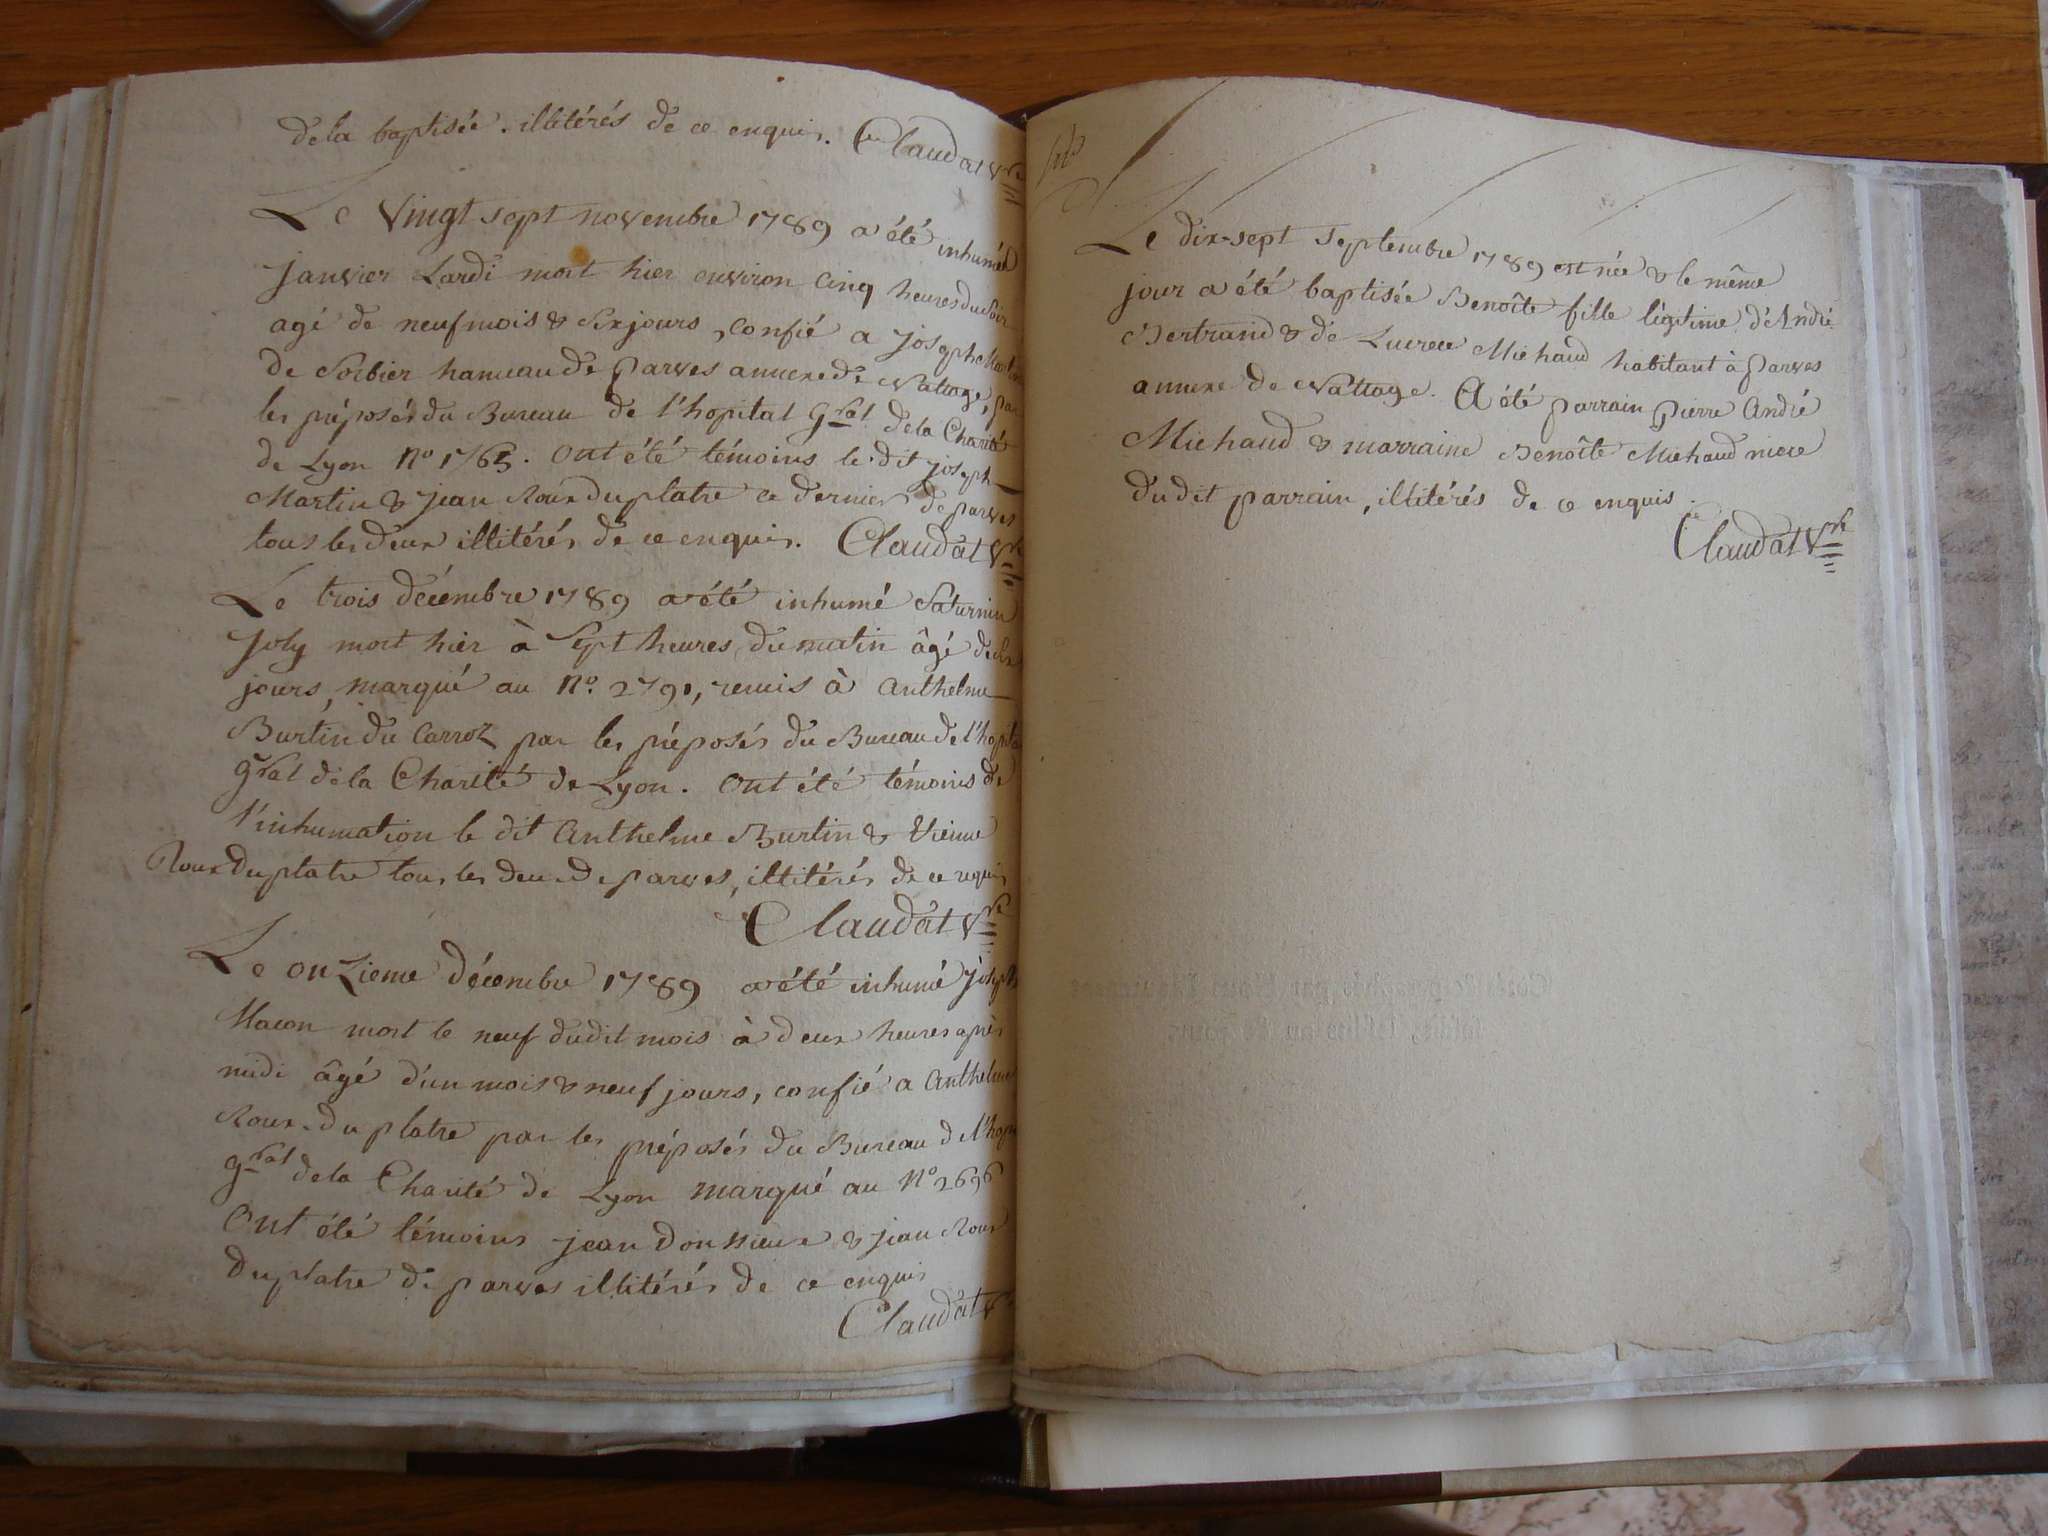 de la baptisée. illitérés de ce enquis. Claudat Vre
Le Vingt sept novembre 1789 a été inhumé
janvier Lardi mort hier environ cinq heures du soir
agé de neuf mois & six jours, confié a joseph Martin
de Sorbier hameau de parves annexe de Nattage, par
les préposés du Bureau de l'hopital gral de la Charité
de Lyon No 1765. Ont été témoins le dit joseph
Martin & jean Roux du platre ce dernier de parves
tous les deux illitérés de ce enquis. Claudat Vre
Le trois décémbre 1789 a été inhumé Saturnin
joly mort hier à sept heures du matin âgé de six
jours, marqué au No. 2791, remis à anthelme
Burtin du Carroz par les préposés du Bureau de l'hopital
gral de la Charité de Lyon. Ont été témoins de
l'inhumation le dit anthelme Burtin & Etienne
Roux du platre tous les deux de parves, illitérés de ce requis
Claudat Vre
Le onzieme décembre 1789 a été inhumé joseph
Macon mort le neuf dudit mois à deux heures après
midi âgé d'un mois & neuf jours, confié a anthelme
Roux du platre par les préposés du Bureau de l'hop
gral de la Charité de Lyon marqué au No 2696
Ont été témoins jean & jean Roux
du platre de parves illitérés de ce enquis
Claudat Vre
Le dix-sept septembre 1789 est née & le même
jour a été baptisée Benoîte fille légitime d'André
Bertrand & de Lucrece Michaud habitant à parves
annexe de Nattage. A été parrain pierre andré
Michaud & marraine Benoîte Michaud niece
dudit parrain, illitérés de ce enquis.
Claudat Vre